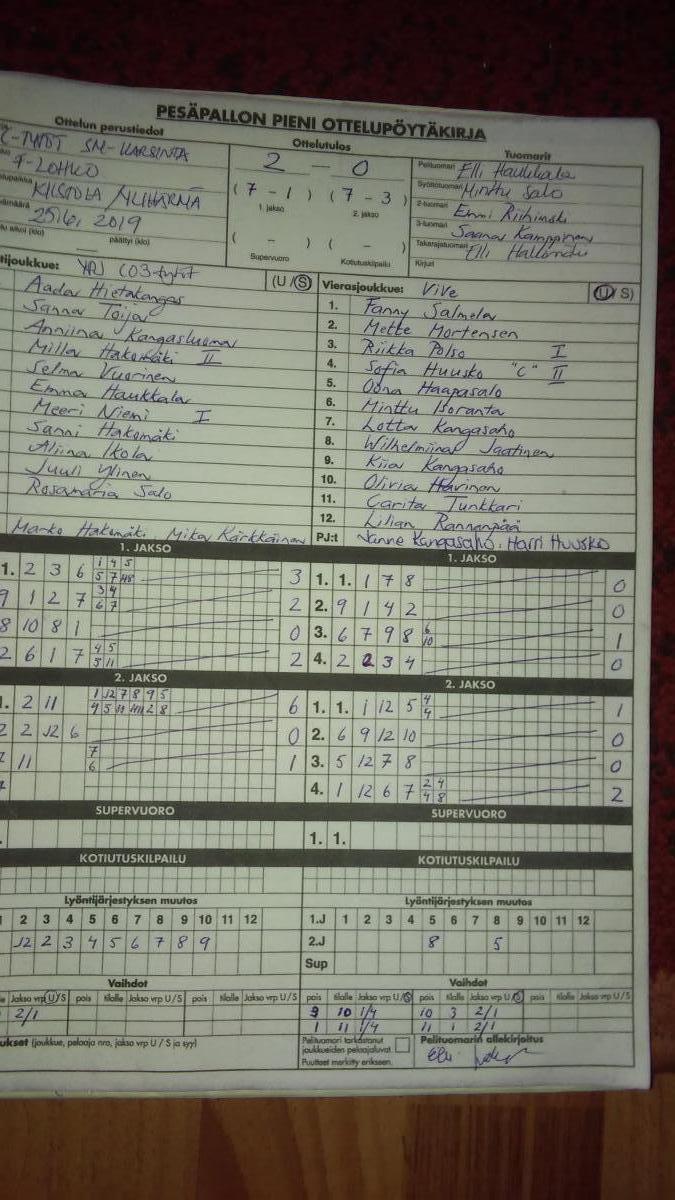 PESÄPALLON PIENI OTTELUPÖYTÄKIRJA
Ottelun perustiedot
C-TYTÖT SM-KARSINTA
F-LOHKO
KILSTOLA / YLIHÄRMÄ
25.6. 2019
päättyi (klo)
Ottelutulos
2 – 0
( 7 - 1 ) ( 7 - 3 )
1. jakso 2. jakso
( – ) ( – )
Supervuoro Kotiutuskilpailu
Tuomarit
Pelituomari Elli Haukkala
Syöttötuomari Minttu Salo
2-tuomari Emmi Riihimäki
3-tuomari Saana Kamppinen
Takarajatuomari Elli
Kirjuri
tijoukkue: YPJ C03-tytöt (U/S)
Aada Hietakangas
Sanna Toija
Anniina Kangasluoma
Milla Hakomäki II
Selma Vuorinen
Emma Haukkala
Meeri Niemi I
Sanni Hakomäki
Aliina Ikola
Juuli Ylinen
Rosamaria Salo
Marko Hakomäki, Mika Kärkkäinen
Vierasjoukkue: ViVe (U/S)
1. Fanny Salmela
2. Mette Mortensen
3. Riikka Polso I
4. Sofia Huusko "C" II
5. Oona Haapasalo
6. Minttu Isoranta
7. Lotta Kangasaho
8. Wilhelmiina Jaatinen
9. Kiia Kangasaho
10. Olivia Harinen
11. Carita Tunkkari
12. Lilian Rannanpää
PJ:t Janne Kangasaho, Harri Huusko
1. JAKSO
1. 2 3 6 1 4 5 5 7 3
9 1 2 7 3 4 6 7 2
8 10 8 1 0
2 6 1 7 4 5 5 11 2
1. JAKSO
1. 1. 1 7 8 0
2. 9 1 4 2 0
3. 6 7 9 8 6 10 1
4. 2 2 3 4 0
2. JAKSO
1. 2 11 1 12 7 8 9 5 6
2 2 12 6 0
11 7 6 1
2. JAKSO
1. 1. 1 12 5 4 4 1
2. 6 9 12 10 0
3. 5 12 7 8 0
4. 1 12 6 7 2 4 4 8 2
SUPERVUORO
SUPERVUORO
1. 1.
KOTIUTUSKILPAILU
KOTIUTUSKILPAILU
Lyöntijärjestyksen muutos
2 3 4 5 6 7 8 9 10 11 12
12 2 3 4 5 6 7 8 9
Lyöntijärjestyksen muutos
1.J 1 2 3 4 5 6 7 8 9 10 11 12
2.J 8 5
Sup
Vaihdot
Jakso vrp U/S pois tilalle Jakso vrp U/S pois tilalle Jakso vrp U/S
2/1
Vaihdot
pois tilalle Jakso vrp U/S pois tilalle Jakso vrp U/S pois tilalle Jakso vrp U/S
9 10 1/4 10 3 2/1
1 11 1/4 11 1 2/1
ukset (joukkue, pelaaja nro, jakso vrp U / S ja syy)
Pelituomari tarkastanut
joukkueiden pelaajaluvat.
Puutteet merkitty erikseen.
Pelituomarin allekirjoitus